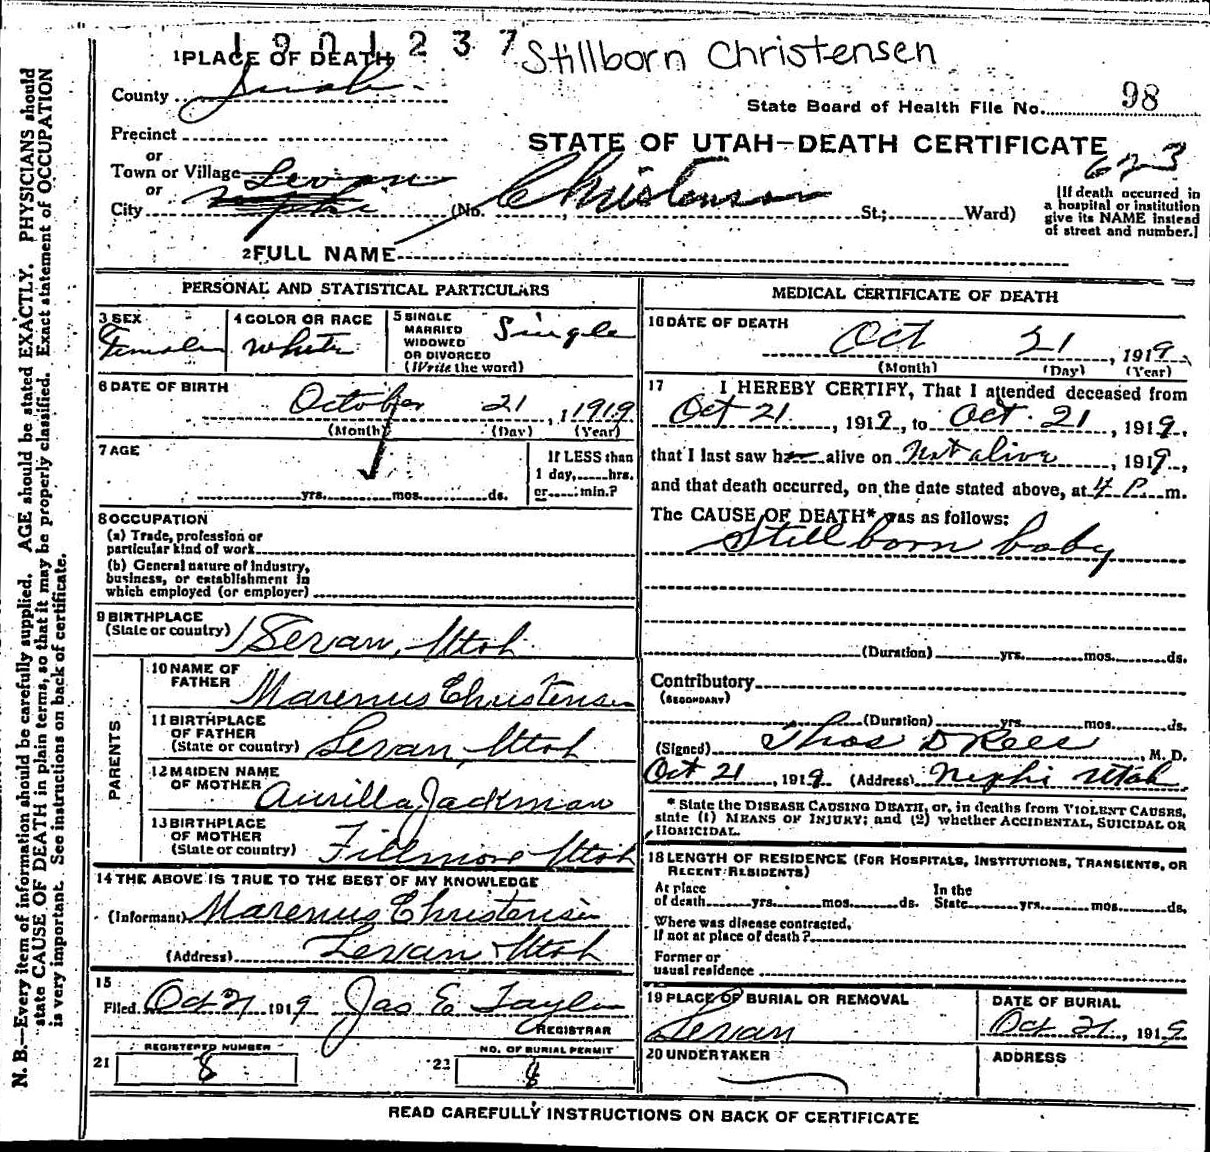 1901237 Stillborn Christensen
1 PLACE OF DEATH
County Juab
State Board of Health File No. 98
Precinct
STATE OF UTAH—DEATH CERTIFICATE
623
or
Town or Village Levan
or
City Nephi (No. Christensen St.; Ward)
[If death occurred in
a hospital or institution
give its NAME instead
of street and number.]
2 FULL NAME
PERSONAL AND STATISTICAL PARTICULARS
3 SEX Female
4 COLOR OR RACE White
5 SINGLE
MARRIED
WIDOWED
OR DIVORCED
(Write the word)
Single
6 DATE OF BIRTH
October 21, 1919
(Month) (Day) (Year)
7 AGE
yrs. mos. ds.
If LESS than
1 day, hrs.
or min.?
8 OCCUPATION
(a) Trade, profession or
particular kind of work
(b) General nature of industry,
business, or establishment in
which employed (or employer)
9 BIRTHPLACE
(State or country) Levan, Utah
PARENTS
10 NAME OF
FATHER Marenus Christensen
11 BIRTHPLACE
OF FATHER
(State or country) Levan, Utah
12 MAIDEN NAME
OF MOTHER Aurilla Jackman
13 BIRTHPLACE
OF MOTHER
(State or country) Fillmore Utah
14 THE ABOVE IS TRUE TO THE BEST OF MY KNOWLEDGE
(Informant) Marenus Christensen
(Address) Levan Utah
15
Filed Oct 21 1919 Jas E Taylor
REGISTRAR
21 REGISTERED NUMBER 8
22 NO. OF BURIAL PERMIT 8
MEDICAL CERTIFICATE OF DEATH
16 DATE OF DEATH
Oct 21, 1919
(Month) (Day) (Year)
17 I HEREBY CERTIFY, That I attended deceased from
Oct 21, 1919, to Oct. 21, 1919,
that I last saw her alive on Not alive, 1919,
and that death occurred, on the date stated above, at 4 P. m.
The CAUSE OF DEATH* was as follows:
Stillborn baby
(Duration) yrs. mos. ds.
Contributory
(SECONDARY)
(Duration) yrs. mos. ds.
(Signed) Thos D Rees, M. D.
Oct 21, 1919 (Address) Nephi Utah
* State the DISEASE CAUSING DEATH, or, in deaths from VIOLENT CAUSES,
state (1) MEANS OF INJURY; and (2) whether ACCIDENTAL, SUICIDAL OR
HOMICIDAL.
18 LENGTH OF RESIDENCE (FOR HOSPITALS, INSTITUTIONS, TRANSIENTS, OR
RECENT RESIDENTS)
At place
of death yrs. mos. ds.
In the
State yrs. mos. ds.
Where was disease contracted,
If not at place of death?
Former or
usual residence
19 PLACE OF BURIAL OR REMOVAL
Levan
DATE OF BURIAL
Oct 21, 1919
20 UNDERTAKER
ADDRESS
READ CAREFULLY INSTRUCTIONS ON BACK OF CERTIFICATE
N. B.—Every item of information should be carefully supplied. AGE should be stated EXACTLY. PHYSICIANS should
state CAUSE OF DEATH in plain terms, so that it may be properly classified. Exact statement of OCCUPATION
is very important. See instructions on back of certificate.